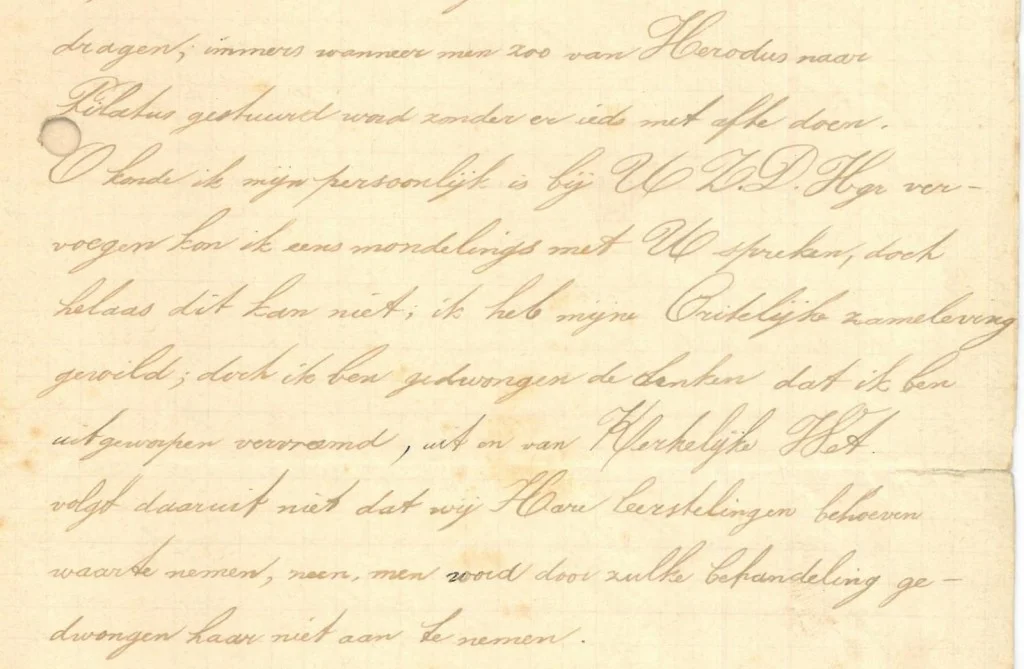 dragen; immers wanneer men zoo van Herodus naar
Pilatus gestuurd word zonder er iets met afte doen.
O konde ik mijn persoonlijk is bij U Z.D. Hgr ver-
voegen kon ik eens mondelings met U spreken, doch
helaas dit kan niet; ik heb mijne zameleving
gewild; doch ik ben gedwongen de denken dat ik ben
uitgeworpen vervreemd, uit en van Kerkelijke Wet.
volgt daaruit niet dat wij Hare leerstelingen behoeven
waarte nemen, neen, men word door zulke behandeling ge-
dwongen haar niet aan te nemen.